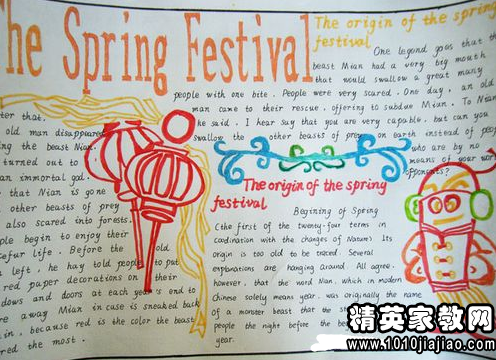 The Spring Festival
The origin of the spring
festival
One legend goes that the
beast Nian had a very big mouth
that would swallow a great many
people with one bite. People were very scared. One day, an old
man came to their rescue, offering to subdue Nian. To Nian
he said, I hear say that you are very capable, but can you
swallow the other beasts of prey on earth instead of people
who are by no
means of your wor
opponents?
ter that.
old man disappeared
ing the beast Nian.
turned out to
an immortal god.
that Nian is gone
other beasts of prey
also scared into forests.
ople begin to enjoy their
ceful life. Before the old
left, he had told people to put
red paper decorations on their
dows and doors at each year's end to
re away Mian in case is sneaked back
in, because red is the color the beast
red the most.
The origin of the spring
festival
Beginning of Spring
(the first of the twenty-four terms in
coordination with the changes of Nature) Its
origin is too old to be traced Several
explanations are hanging around. All agree,
however, that the word Nian, which in modern
Chinese solely means year, was originally the name
of a monster beast that
people the night before the be
year.
精英家教网
www.1010jiajiao.com